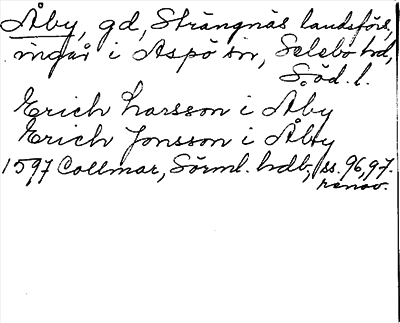 Åby, gd, Strängnäs landsförs,
ingår i Aspö sn, Selebo hd,
Söd. l.
Erich Larsson i Åby
Erich Jonsson i Åby
1597 Collmar, Sörml. hdb, ss. 96, 97.
renov.